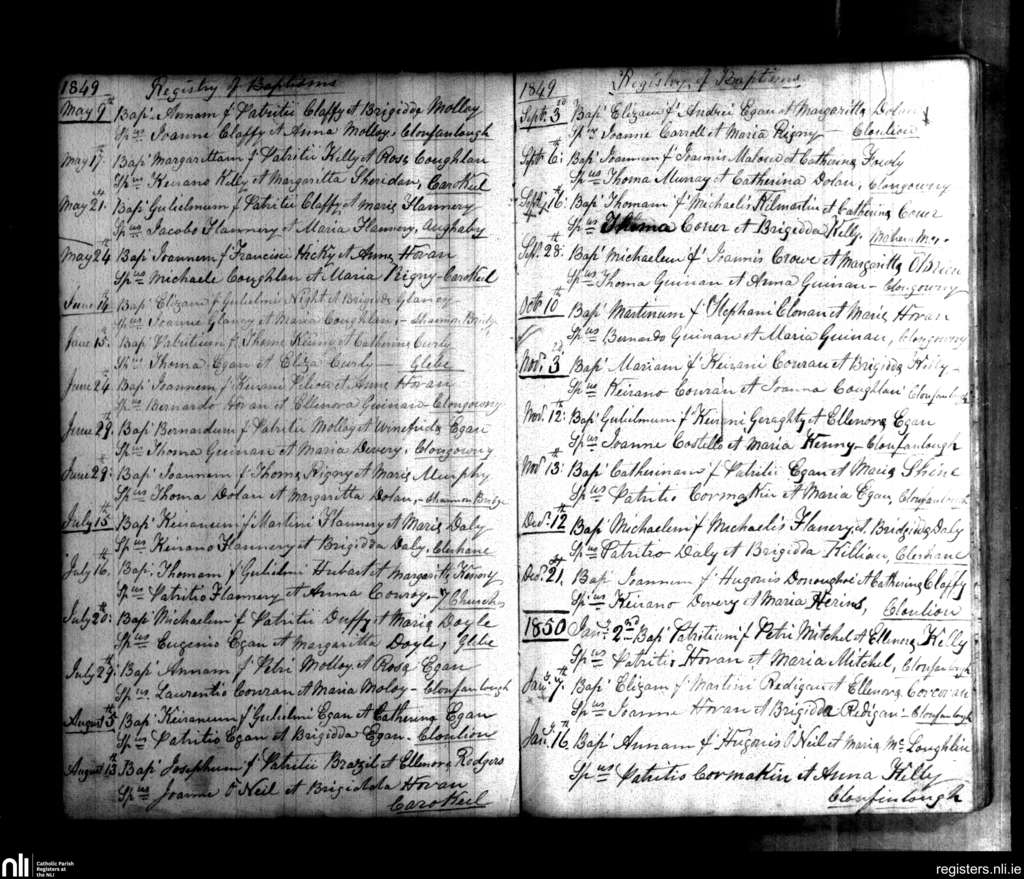 1849 Registry of Baptisms
May 9th Bap' Annam f' Patritii Claffy et Brigidda Molloy
Sp us Joanne Claffy et Anna Molloy, Clonfanlough
May 17. Bap' Margarittam f' Patritii Kelly et Rosa Coughlan
Sp us Keirano Kelly et Margaretta Sheridan, CaroKeil
May 21. Bap' Gulielmum f' Patritii Claffy et Maria Flannery
Sp us Jacobo Flannery et Maria Flannery, Aughaboy
May 24th Bap' Joannem f' Francisci Hicky et Anna Hovan
Sp us Michaele Coughlan et Maria Rigny - CaroKeil
June 14 Bap' Elizam f' Gulielmi Night et Brigida Glancy
Sp us Joanne Glancy et Maria Coughlan, - Shannon Bridge
June 15. Bap' Patritium f' Thoma et Catherina Curly
Sp us Thoma Egan et Eliza Curly - Glebe
June 24. Bap' Joannem f' Keirani et Anna Hovan
Sp us Bernardo Hovan et Ellenora Guinan - Clongowny
June 29th Bap' Bernardum f' Patritii Molloy et Winefrida Egan
Sp us Thoma Guinan et Maria Devery, Clongowny
June 29th: Bap' Joannem f' Thoma Rigny et Maria Murphy
Sp us Thoma Dolan et Margaritta Dolan, - Shannon Bridge
July 15th Bap' Keiranum f' Martini Flannery et Maria Daly
Sp us Keirano Flannery et Brigidda Daly. Clerhane
July 16th Bap. Thomam f' Gulielmi Hubart et Margaritta Kenny
Sp us Patritio Flannery et Anna Conroy - 7 Churches
July 20th: Bap' Michaelem f' Patritii Duffy et Maria Doyle
Sp us Eugenio Egan et Margaritta Doyle, Glebe
July 29th: Bap' Annam f' Petri Molloy et Rosa Egan
Sp us Laurentio Conran et Maria Moloy - Clonfanlough
August 5th Bap' Keiranum f' Gulielmi Egan et Catherina Egan
Sp us Patritio Egan et Brigidda Egan. Clonlion
August 13th Bap' Josephum f' Patritii Brazel et Ellenora Rodgers
Sp us Joanne O'Neil et Brigidda Hovan
CaroKeil
1849 Registry of Baptisms
Sept: 3rd Bap' Elizam f' Andrei Egan et Margaritta Dolan
Sp us Joanne Carroll et Maria Rigny - Clonlion
Sept: 6th: Bap' Joannem f' Joannis Malone et Catherina
Sp us Thoma Murray et Catherina Dolan, Clongowny
Sept. 16th: Bap' Thomam f' Michaelis Kilmartin et Catherina Coner
Sp us Thoma Coner et Brigidda Kelly.
Sep. 28th: Bap' Michaelem f' Joannis Crowe et Margaritta O'Brien
Sp us Thoma Guinan et Anna Guinan - Clongowny
Octo 10th Bap' Martinum f' Stephani Clonan et Maria Hovan
Sp us Bernardo Guinan et Maria Guinan, Clongowny
Nov. 3rd Bap' Mariam f' Keirani Conran et Brigida Kelly -
Sp us Keirano Conran et Joanna Coughlan Clonfanlough
Nov. 12th: Bap' Gulielmum f' Keirani Geraghty et Ellenora Egan
Sp us Joanne Costello et Maria Kenny - Clonfanlough
Nov. 13th: Bap' Catherinam f' Patritii Egan et Maria Shine
Sp us Patritio Cormakin et Maria Egan, Clonfanlough
Dec. 12th Bap' Michaelem f' Michaelis Flanery et Bridgidda Daly
Sp us Patritio Daly et Brigidda Killian, Clerhane
Dec. 21. Bap' Joannem f' Hugonis Donoughoe et Catherina Claffy
Sp us Keirano Devery et Maria Herins, Clonlion
1850 Jan. 2nd Bap' Patritium f' Petri Mitchel et Ellenora Kelly
Sp us Patritio Hovan et Maria Mitchel, Clonfanlough
Jan. 7th. Bap' Elizam f' Martini Redigan et Ellenora Corcoran
Sp us Joanne Hovan et Brigidda Redigan - Clonfanlough
Jan. 16th Bap' Annam f' Hugonis O'Neil et Maria Mc Loughlin
Sp us Patritio Cormakin et Anna Kelly
Clonfinlough
nli Catholic Parish
Registers at
the NLI
registers.nli.ie